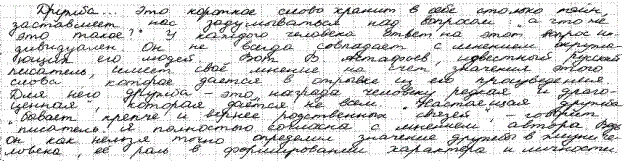 Дружба... Это короткое слово хранит в себе столько тайн,
заставляет нас задумываться над вопросом "а что же
это такое?" У каждого человека ответ на этот вопрос ин-
дивидуален. Он не всегда совпадает с мнением окружа-
ющих его людей. Вот В. Астафьев, известный русский
писатель, имеет своё мнение на счёт значения этого
слова, которое даётся в отрывке из его произведения.
Для него дружба - это "награда человеку редкая и драго-
ценная", которая даётся не всем. "Настоящая дружба
бывает крепче и вернее родственных связей", - говорит
писатель. Я полностью согласна с мнением автора. Ведь
он как нельзя точно определил значение дружбы в жизни че-
ловека, её роль в формировании характера и личности